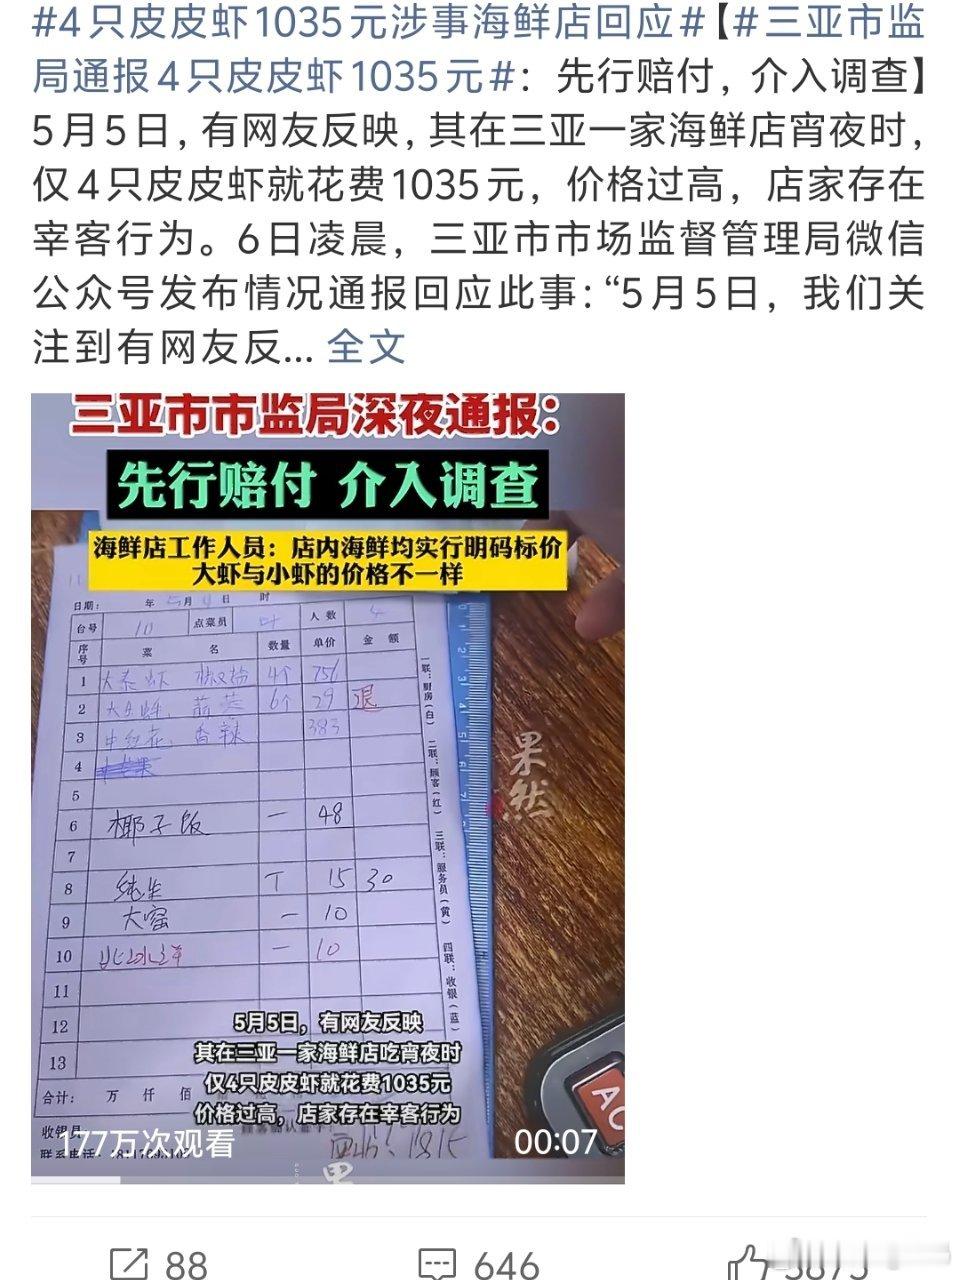 #4只皮皮虾1035元涉事海鲜店回应#【#三亚市监
局通报4只皮皮虾1035元#：先行赔付，介入调查】
5月5日，有网友反映，其在三亚一家海鲜店宵夜时，
仅4只皮皮虾就花费1035元，价格过高，店家存在
宰客行为。6日凌晨，三亚市市场监督管理局微信
公众号发布情况通报回应此事：“5月5日，我们关
注到有网友反... 全文
三亚市市监局深夜通报：
先行赔付 介入调查
海鲜店工作人员：店内海鲜均实行明码标价
大虾与小虾的价格不一样
日期： 年 5月 日 时
台号 10 点菜员 叶 人数 4
序号 菜 名 数量 单价 金 额
1 4个 756
2 6个 29 退
3 香辣 383
4
5
6 椰子饭 一 48
7
8 纯生 T 15 30
9 大窑 一 10
10 一 10
11
12
13
合计： 万 仟 佰
收银员
联系电话：
一联：厨房（白）
二联：顾客（红）
三联：服务员（黄）
四联：收银（蓝）
果然
AC
5月5日，有网友反映
其在三亚一家海鲜店吃宵夜时
仅4只皮皮虾就花费1035元
价格过高，店家存在宰客行为
177万次观看
00:07
88
646